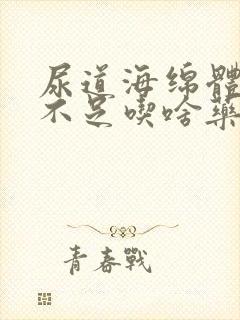 尿道海绵體
不足喫啥藥
青春戰